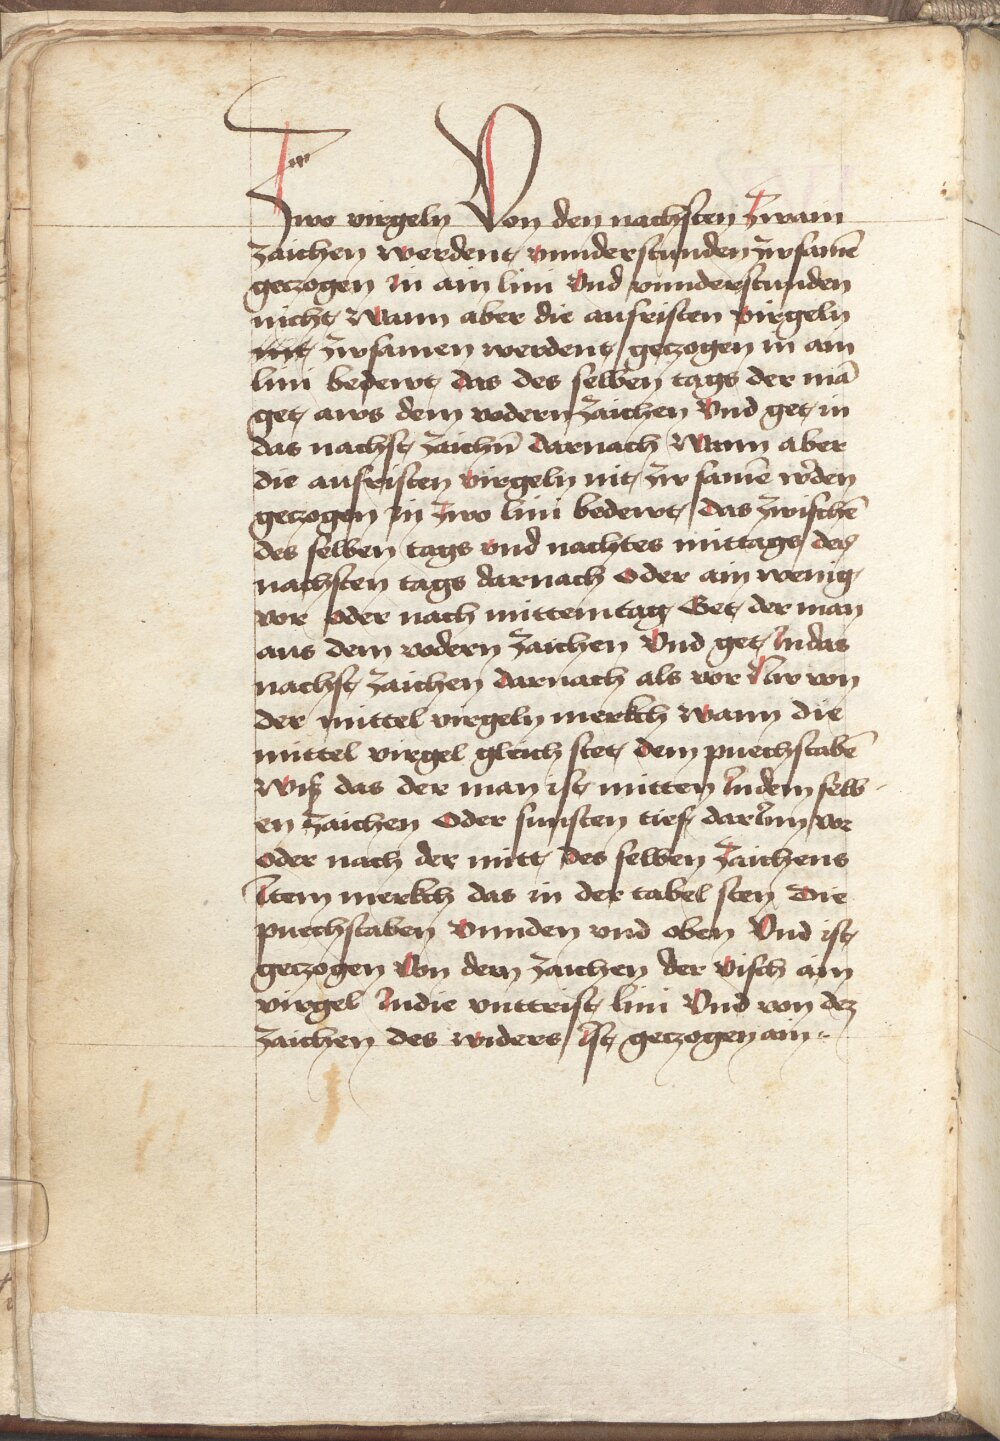 Zwo virgeln Von den nachsten zwain
zaichen werdent vnnderstunden zwsamē
geczogen in ain lini Vnd vnnderstunden
nicht Wann aber die ausristen virgeln
zwsamen werdent geczogen in ain
lini bedewt das des selben tags der mā
get aws dem vodern zaichen Vnd get in
das nachst zaichn̄ darnach Wann aber
die ausristen virgeln nit zw samē wden
geczogen in zwo lini bedewt das zwischē
des selben tags vnd nachtes mittags des
nachsten tags darnach Oder ain wenig
vor oder nach mittemtag Get der man
aus dem vodern zaichen Vnd get Indas
nachst zaichen darnach als vor von
der mittel virgeln merkch wann die
mittel virgel gleich stet dem puechstabē
Wiß das der man ist mitten Indem selb
en zaichen Oder sunsten tief darInn vor
Oder nach der mitt des selben zaichens
Item merkch das in der tabel sten Die
puechstaben Vnnden vnd oben Vnd ist
geczogen Von dem zaichen der visch ain
virgel Indie vnttrist lini Vnd von dez
zaichen des widers Ist geczogen ain